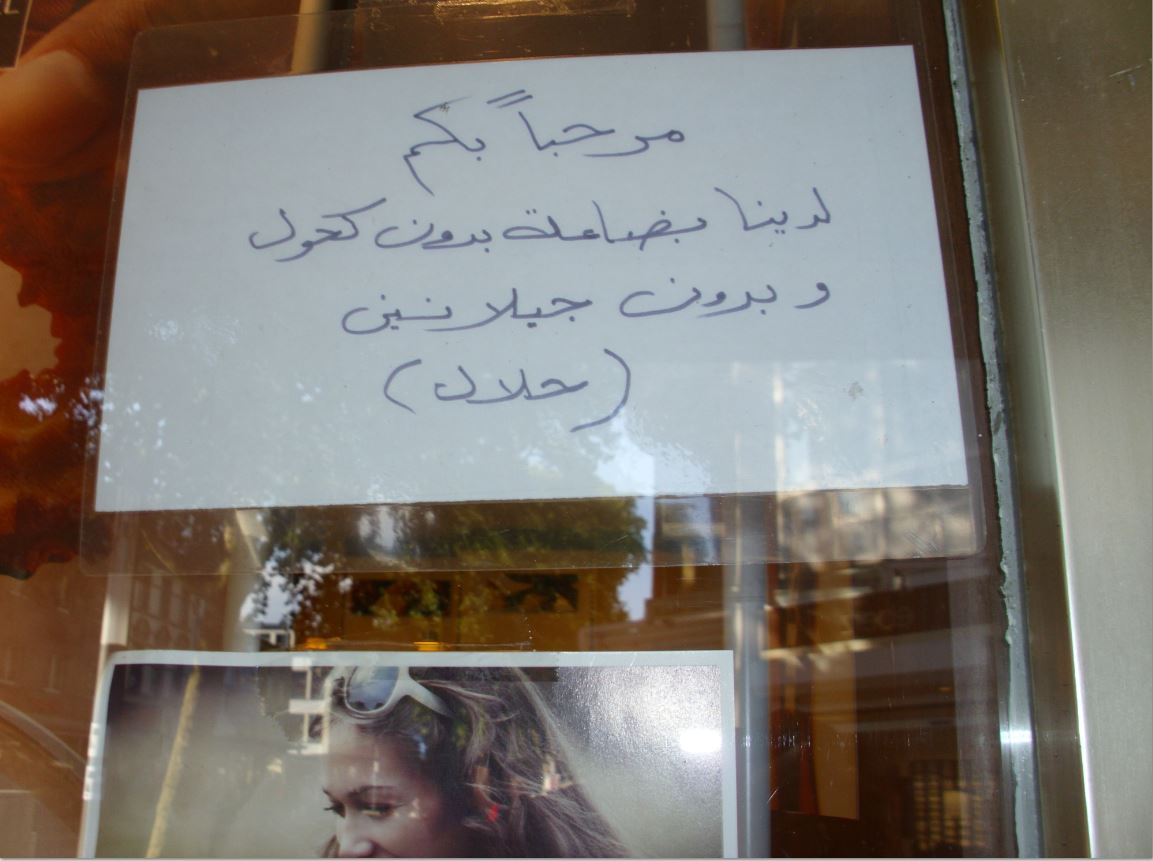 مرحباً بكم
لدينا بضاعة بدون كحول
و بدون جيلاتين
(حلال)